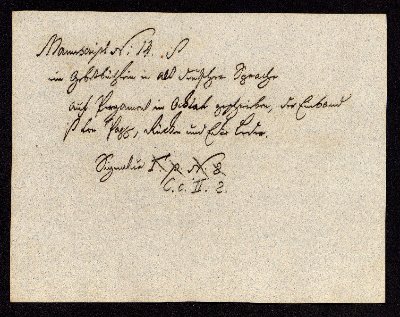 Manuscript N: 14.
ein Gebetbüchlein in alt deutscher Sprache
auf Pergament in Octav geschrieben, der Einband
ist von Papp, Rücken und Ecke Leder.
Signatur
C. c. II. 2.